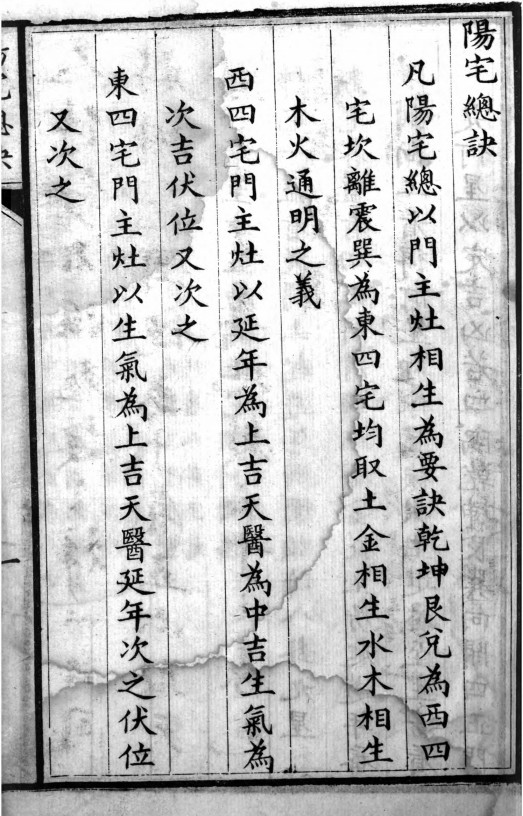 陽宅總訣
凡陽宅總以門主灶相生為要訣乾坤艮兌為西四
宅坎離震巽為東四宅均取土金相生水木相生
木火通明之義
西四宅門主灶以延年為上吉天醫為中吉生氣為
次吉伏位又次之
東四宅門主灶以生氣為上吉天醫延年次之伏位
又次之